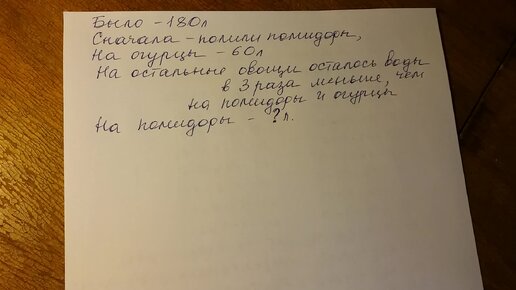 Было - 180л
Сначала - полили помидоры,
На огурцы - 60л
На остальные овощи осталось воды
в 3 раза меньше, чем
на помидоры и огурцы
На помидоры - ? л.